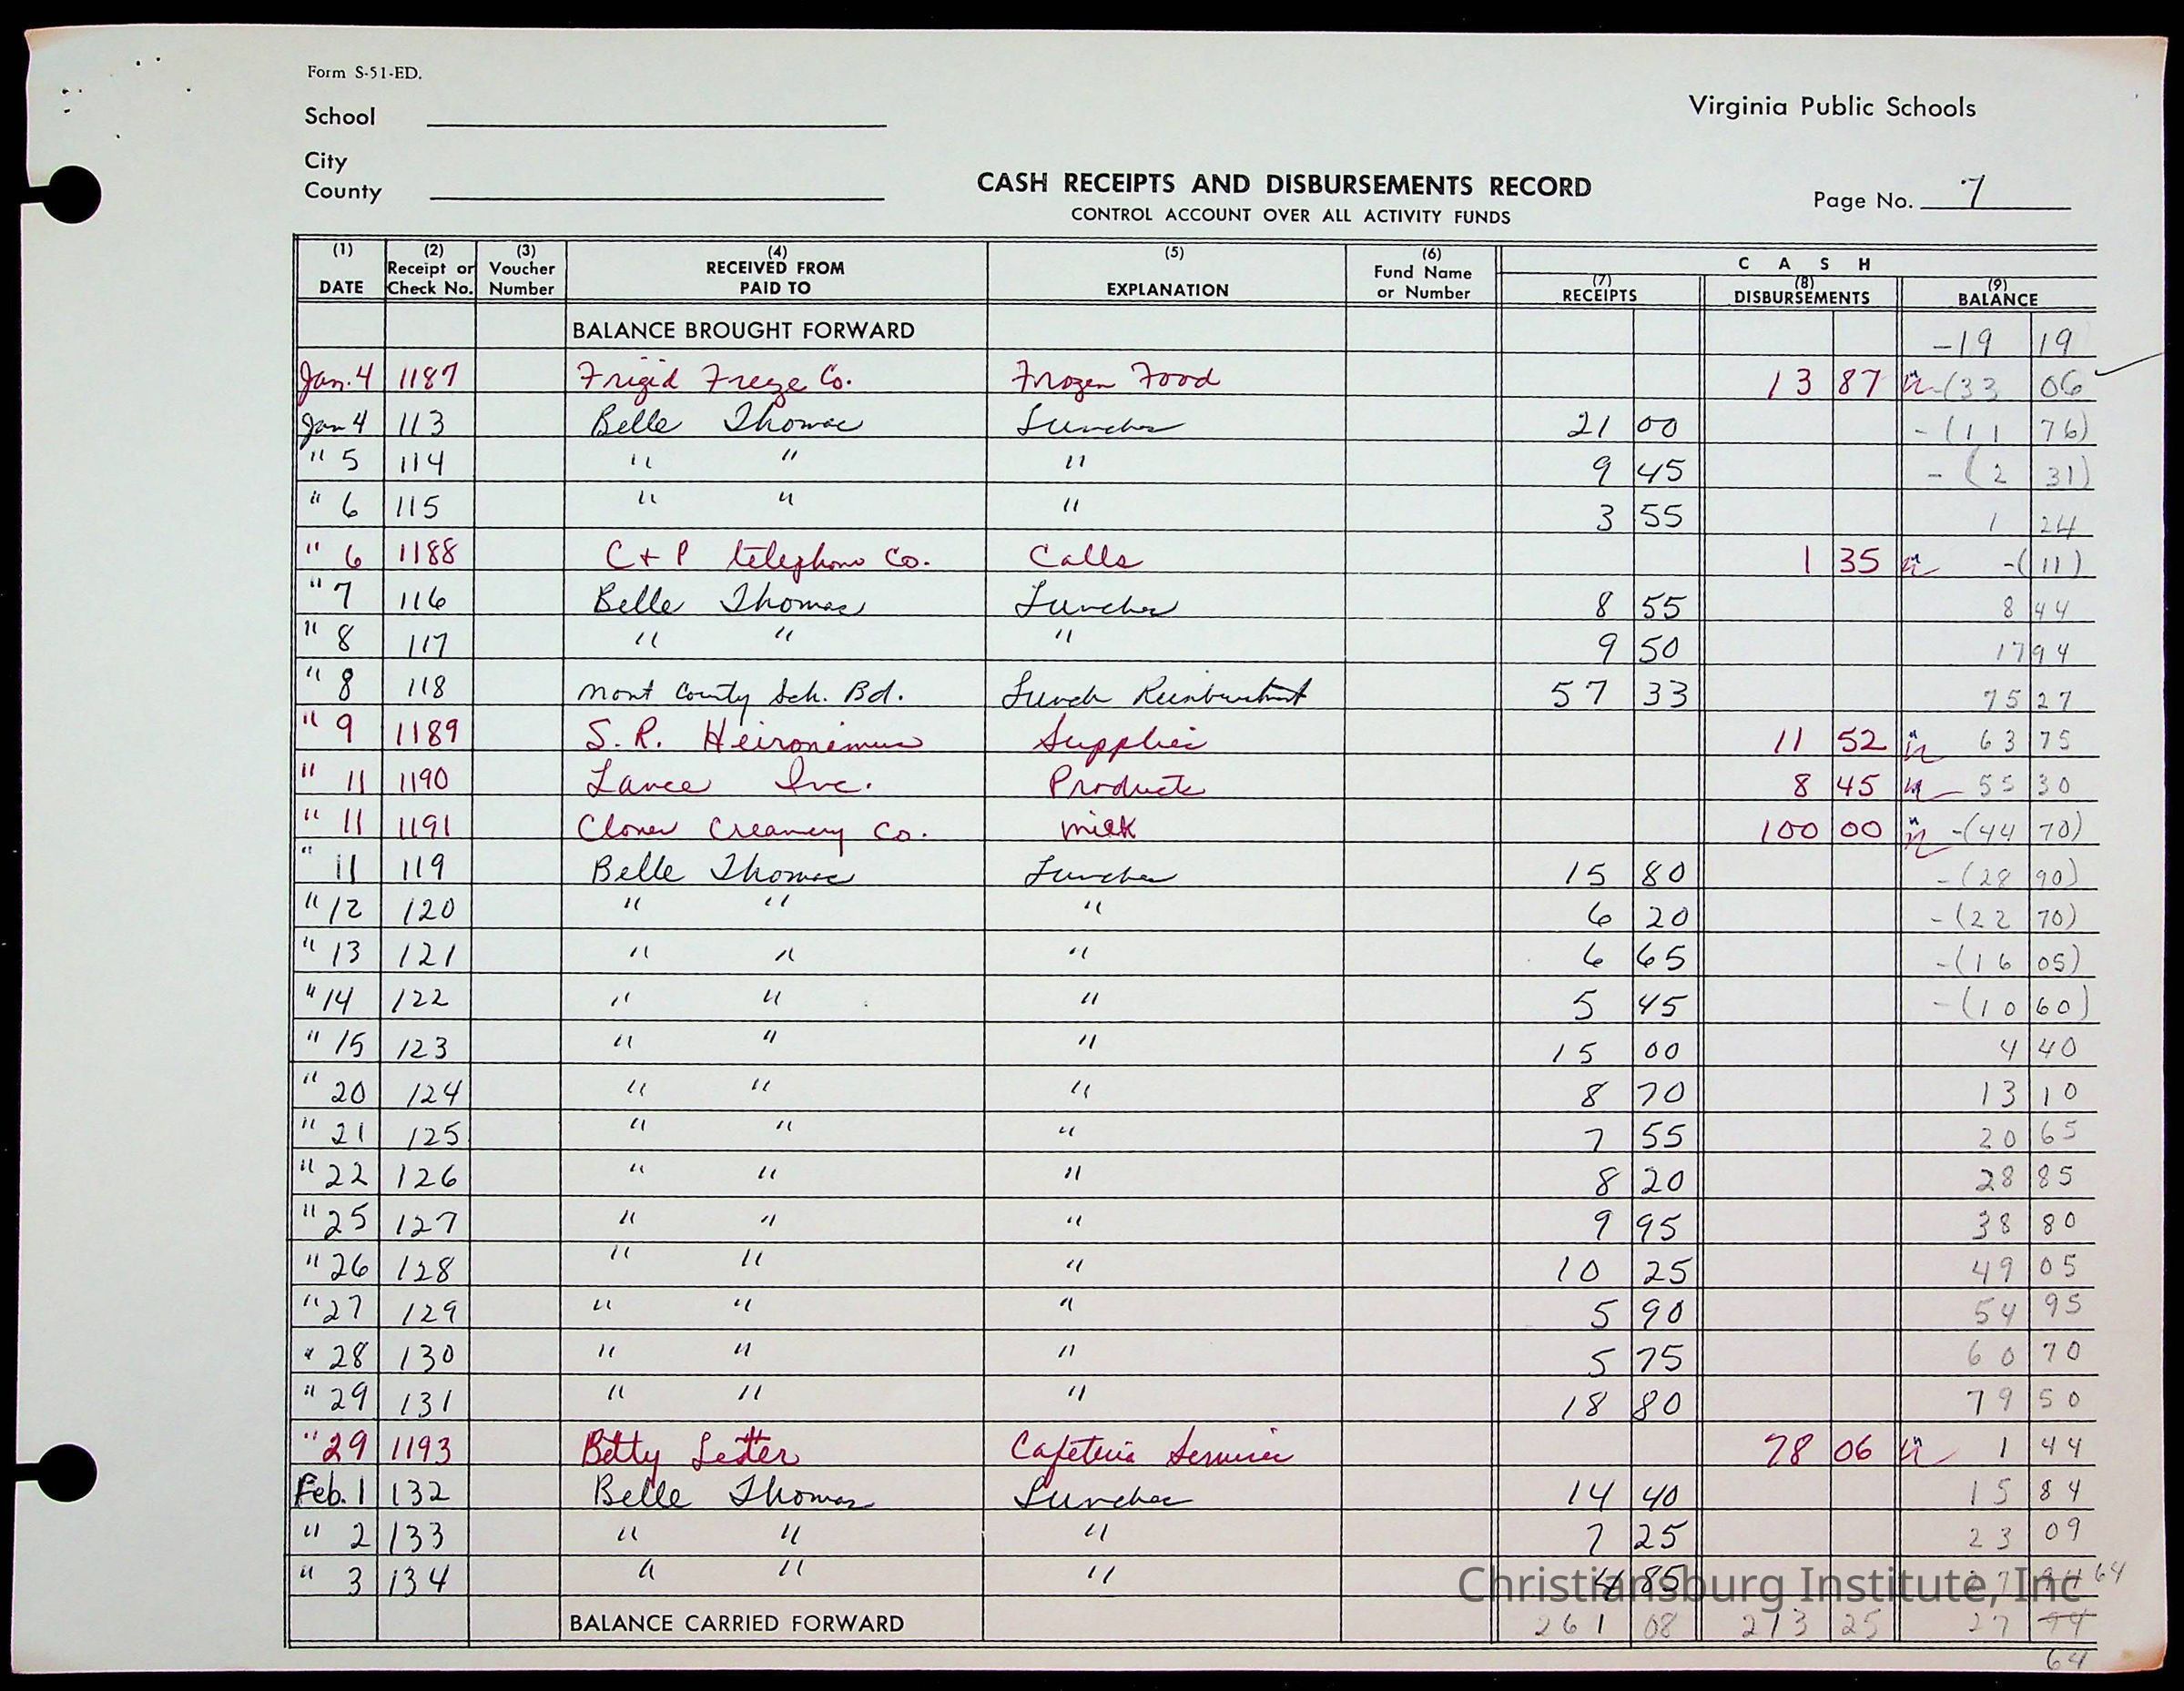 Form S-51-ED.
School
Virginia Public Schools
City
County
CASH RECEIPTS AND DISBURSEMENTS RECORD
Page No. 7
CONTROL ACCOUNT OVER ALL ACTIVITY FUNDS
(1) DATE (2) Receipt or Check No. (3) Voucher Number (4) RECEIVED FROM PAID TO (5) EXPLANATION (6) Fund Name or Number CASH (7) RECEIPTS (8) DISBURSEMENTS (9) BALANCE
BALANCE BROUGHT FORWARD -19 19
Jan. 4 1187 Frigid Freze Co. Frozen Food 13 87 -(33 06
Jan 4 113 Belle Thomas Lunches 21 00 -(11 76)
" 5 114 " " " 9 45 -(2 31)
" 6 115 " " " 3 55 1 24
" 6 1188 C + P telephone Co. Calls 1 35 -(11)
" 7 116 Belle Thomas Lunches 8 55 8 44
" 8 117 " " " 9 50 17 94
" 8 118 Mont County Sch. Bd. Lunch 57 33 75 27
" 9 1189 S. R. Heironimus Supplies 11 52 63 75
" 11 1190 Lance Inc. Products 8 45 55 30
" 11 1191 Clover Creamery Co. milk 100 00 -(44 70)
" 11 119 Belle Thomas Lunches 15 80 -(28 90)
" 12 120 " " " 6 20 -(22 70)
" 13 121 " " " 6 65 -(16 05)
" 14 122 " " " 5 45 -(10 60)
" 15 123 " " " 15 00 4 40
" 20 124 " " " 8 70 13 10
" 21 125 " " " 7 55 20 65
" 22 126 " " " 8 20 28 85
" 25 127 " " " 9 95 38 80
" 26 128 " " " 10 25 49 05
" 27 129 " " " 5 90 54 95
" 28 130 " " " 5 75 60 70
" 29 131 " " " 18 80 79 50
" 29 1193 Betty Lester Cafeteria Services 78 06 1 44
Feb. 1 132 Belle Thomas Lunches 14 40 15 84
" 2 133 " " " 7 25 23 09
" 3 134 " " " 4 85 27 94 64
Christiansburg Institute, Inc
BALANCE CARRIED FORWARD 261 08 213 25 27 94
64